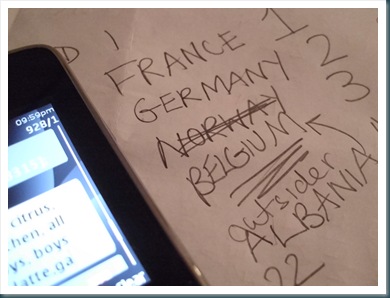 D 1
FRANCE 1
GERMANY 2
NORWAY 3
BELGIUM
outsider
ALBANIA
22
09:59pm
928/1
citrus,
all
boys
latte.ga